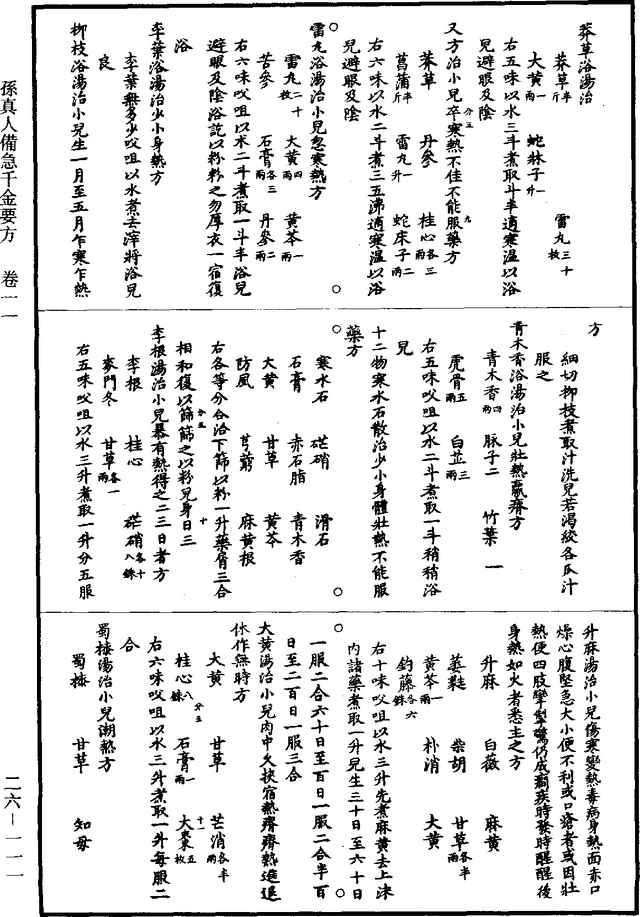 莽草浴湯治
莽草半斤 雷丸三十枚
大黃一兩 蛇牀子一升
右五味以水三斗煮取斗半適寒溫以浴
兒避眼及陰
又方治小兒卒寒熱不佳不能服藥方
莽草 丹參 桂心各三兩
菖蒲半斤 雷丸一升 蛇床子二兩
右六味以水二斗煮三五沸適寒溫以浴
兒避眼及陰
雷丸浴湯治小兒忽寒熱方
雷丸二十枚 大黃四兩 黃芩一兩
苦參 石膏各三兩 丹參二兩
右六味㕮咀以水二斗煮取一斗半浴兒
避眼及陰浴訖以粉粉之勿厚衣一宿復
浴
李葉浴湯治少小身熱方
李葉無多少㕮咀以水煮去滓將浴兒
良
柳枝浴湯治小兒生一月至五月乍寒乍熱
方
細切柳枝煮取汁洗兒若渴絞冬瓜汁
服之
青木香浴湯治小兒壯熱羸瘠方
青木香四兩 脉子二 竹葉一
虎骨五兩 白芷三兩
右五味㕮咀以水二斗煮取一斗稍稍浴
兒
十二物寒水石散治少小身體壯熱不能服
藥方
寒水石 芒硝 滑石
石膏 赤石脂 青木香
大黃 甘草 黃芩
防風 芎藭 麻黃根
右各等分合治下篩以粉一升藥屑三合
相和復以篩篩之以粉兒身日三
李根湯治小兒暴有熱得之二三日者方
李根 桂心 芒硝各十八銖
麥門冬 甘草各一兩
右五味㕮咀以水三升煮取一升分五服
升麻湯治小兒傷寒變熱毒病身熱面赤口
燥心腹堅急大小便不利或口瘡者或因壯
熱便四肢攣掣驚仍成癇疾時發時醒醒後
身熱如火者悉主之方
升麻 白薇 麻黃
葳蕤 柴胡 甘草各半兩
黃芩一兩 朴消 大黃
鈎藤各六銖
右十味㕮咀以水三升先煮麻黃去上沫
內諸藥煮取一升兒生三十日至六十日
一服二合六十日至百日一服二合半百
日至二百日一服三合
大黃湯治小兒肉中久挾宿熱瘠瘠熱進退
休作無時方
大黃 甘草 芒消各半兩
桂心八銖 石膏一兩 大棗五枚
右六味㕮咀以水三升煮取一升每服二
合
蜀椒湯治小兒潮熱方
蜀椒 甘草 知母
孫真人備急千金要方 卷一一
二六—一一一